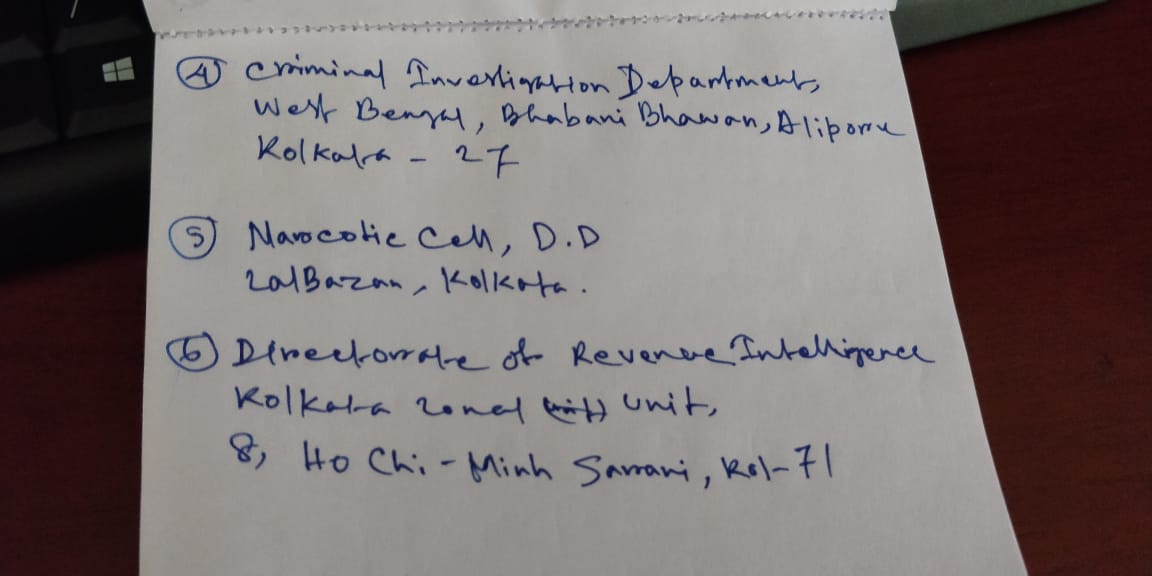 ④ Criminal Investigation Department,
West Bengal, Bhabani Bhawan, Alipore
Kolkata - 27
⑤ Narcotic Cell, D.D
LalBazar, Kolkata.
⑥ Directorate of Revenue Intelligence
Kolkata zonal unit,
8, Ho Chi-Minh Sarani, Kol-71